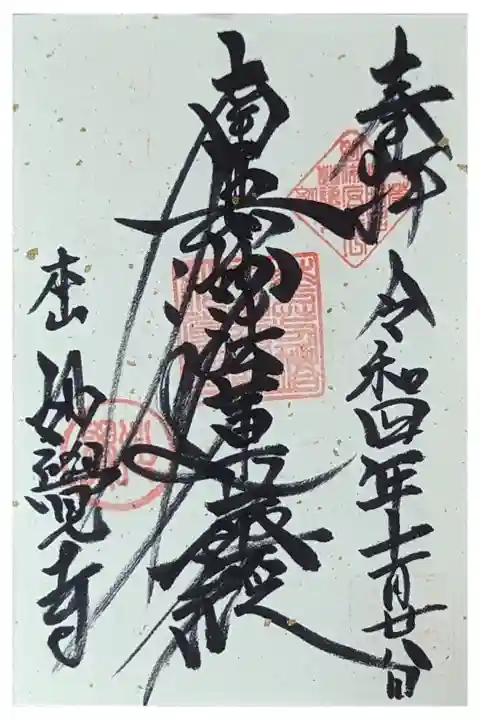 奉拝
令和四年十一月廿八日
南無妙法蓮華経
本山
妙覺寺